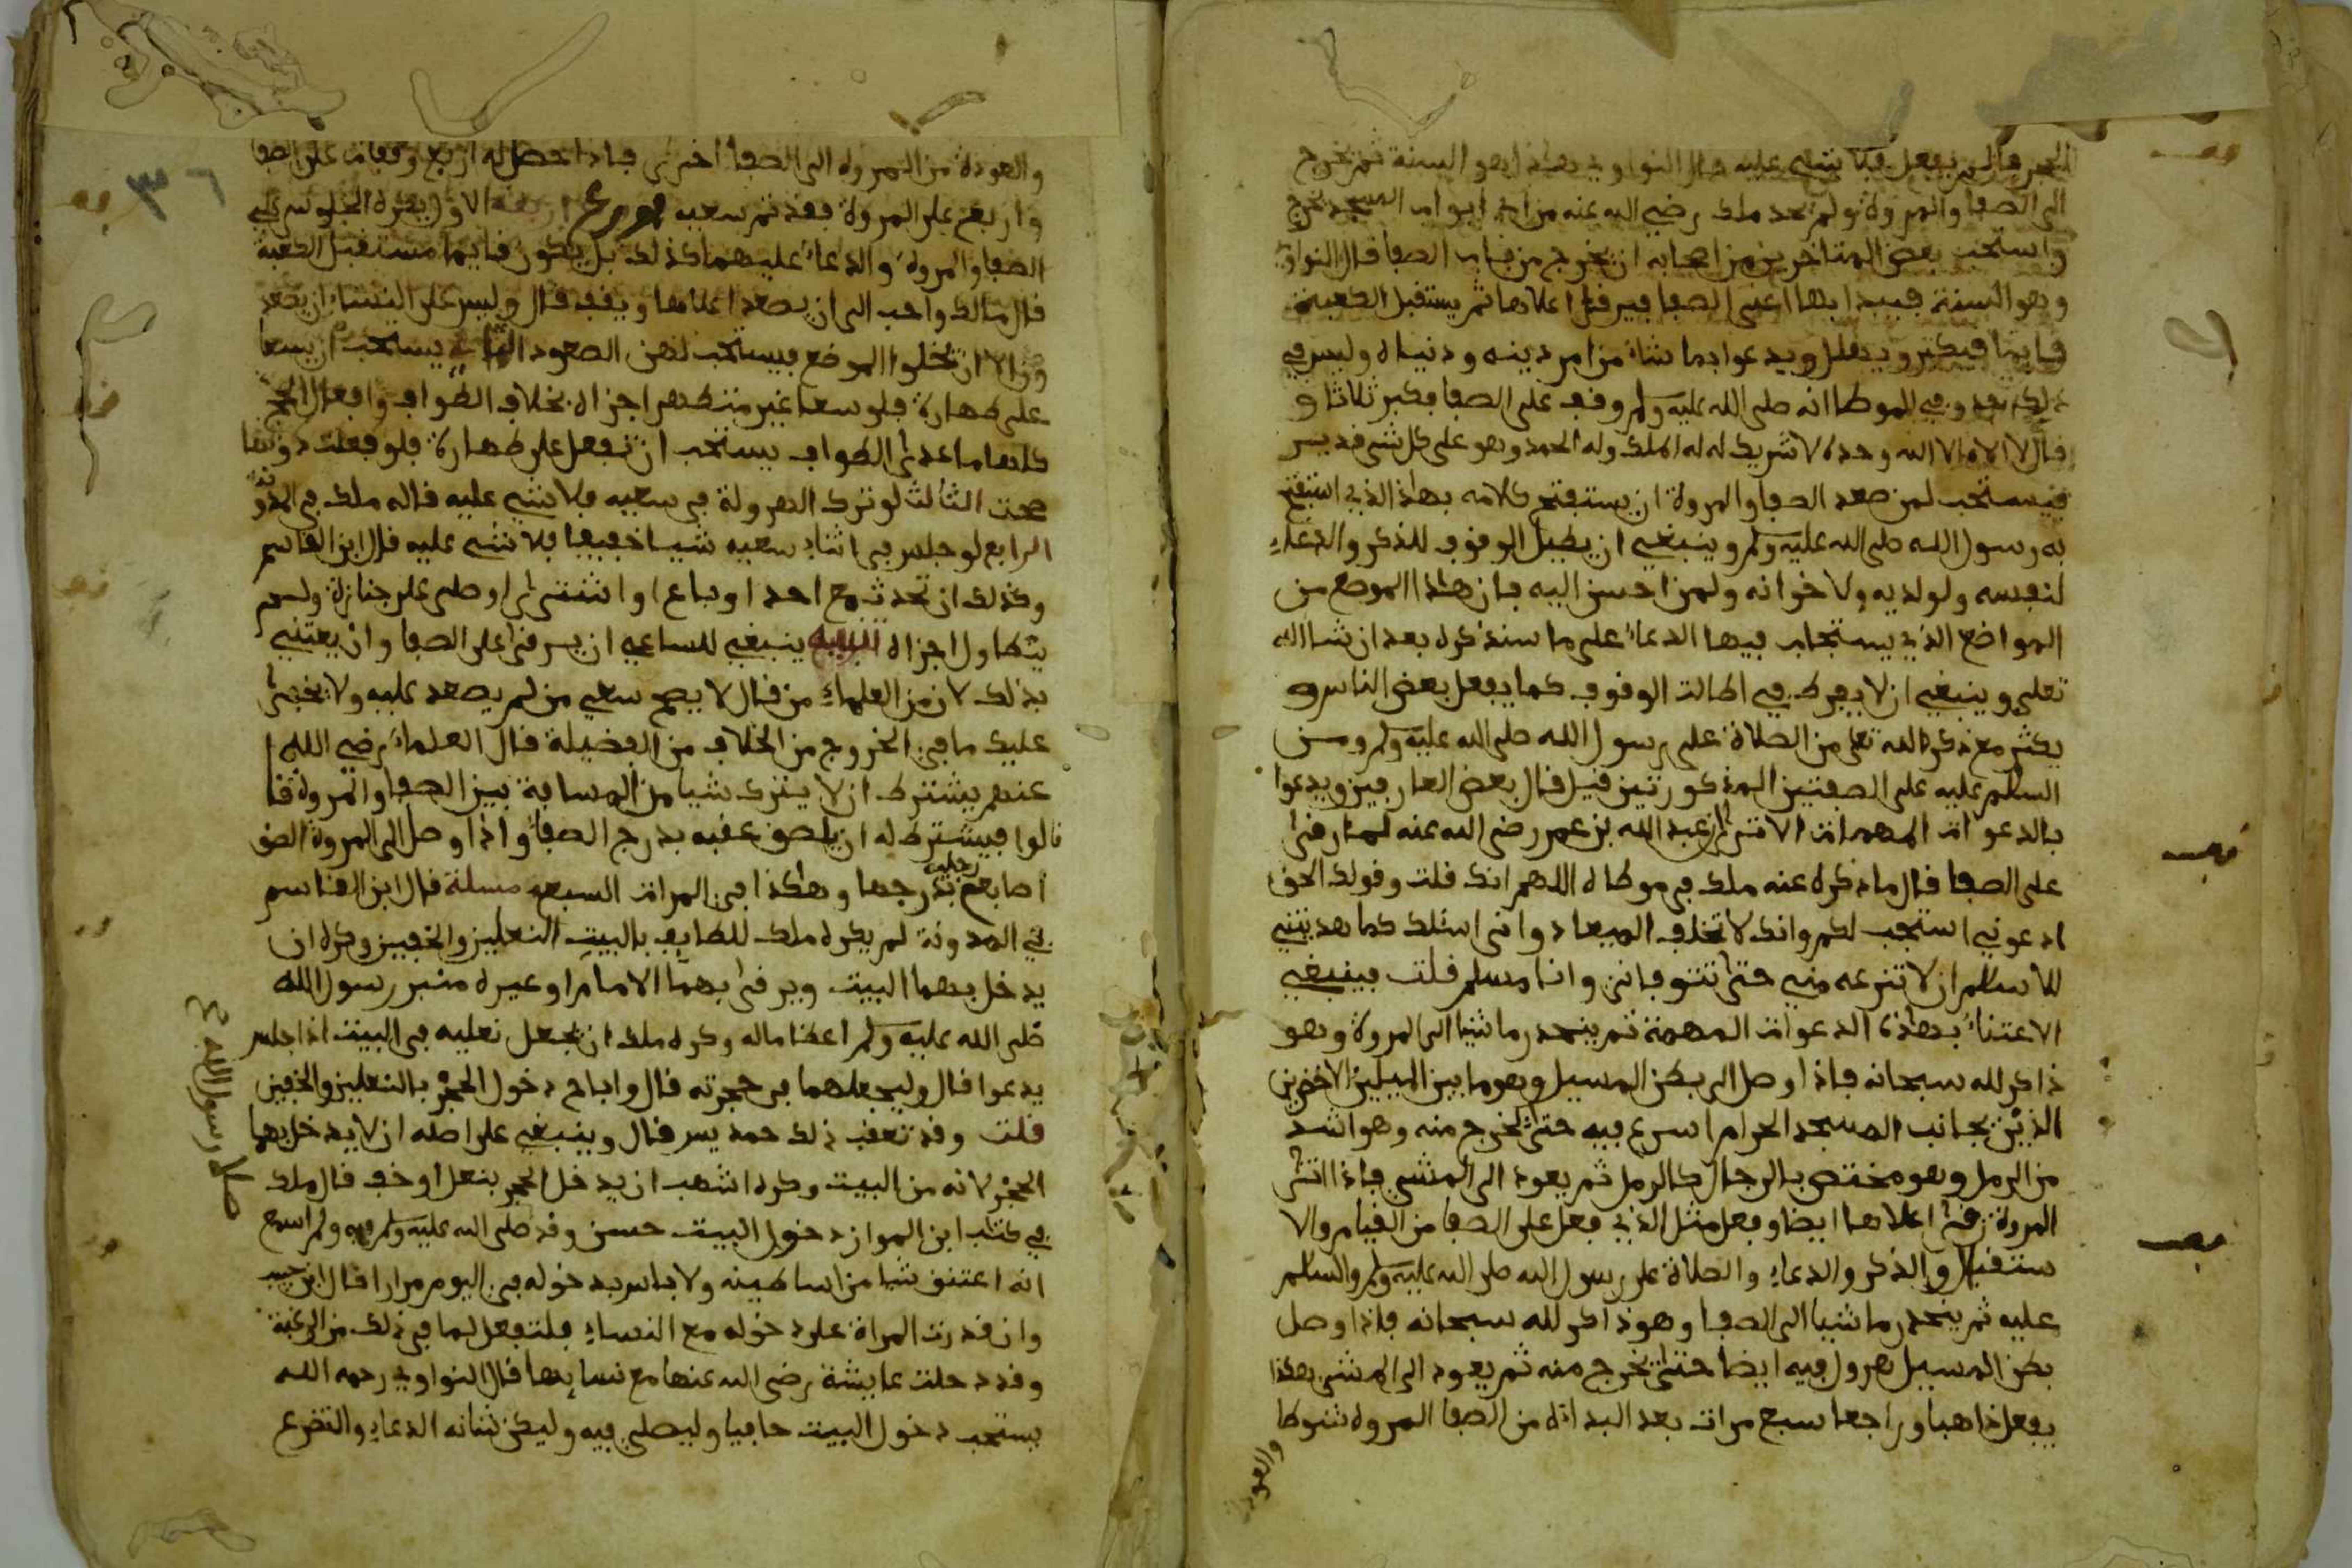 الحجر فان لم يفعل فلا شيء عليه قال النواوي هذا هو السنة ثم يخرج
الى الصفا والمروة ولم يحد ملك رضي الله عنه من اي ابواب المسجد يخرج
واستحب بعض المتاخرين من اصحابه ان يخرج من باب الصفا قال النواوي
وهو السنة فيبدا بها اعني الصفا فيرقى اعلاها ثم يستقبل الكعبة
قايما فيكبر ويهلل ويدعوا بما شاء من امر دينه ودنياه وليس في
ذلك حد وفي الموطا انه صلى الله عليه وسلم وقف على الصفا فكبر ثلاثا و
قال لا اله الا الله وحده لا شريك له له الملك وله الحمد وهو على كل شي قدير
فيستحب لمن صعد الصفا والمروة ان يستفتح كلامه بهذا الذي استفتح
به رسول الله صلى الله عليه وسلم وينبغي ان يطيل الوقوف للذكر والدعاء
لنفسه ولولديه ولاخوانه ولمن احسن اليه فان هذا الموضع من
المواضع الذي يستجاب فيها الدعاء على ما سنذكره بعد ان شا الله
تعلى وينبغي ان لا يفرط في اطالت الوقوف كما يفعل بعض الناس و
يكثر مع ذكر الله تعلى من الصلاة على رسول الله صلى الله عليه وسلم ومن
السلم عليه على الصفتين المذكورتين قيل قال بعض العارفين ويدعوا
بالدعوات المهمات الا ترى ان عبد الله بن عمر رضي الله عنه لما رقى
على الصفا قال ما ذكره عنه ملك في موطاه اللهم انك قلت وقولك الحق
ادعوني استجب لكم وانك لا تخلف الميعاد واني اسئلك كما هديتني
للاسلم ان لا تنزعه مني حتى تتوفاني وانا مسلم قلت فينبغي
الاعتناء بهذه الدعوات المهمة ثم ينحدر ماشيا الى المروة وهو
ذاكر لله سبحانه فاذا وصل الى بطن المسيل وهو ما بين الميلين الاخضرين
الذين بجانب المسجد الحرام اسرع فيه حتى يخرج منه وهو اشد
من الرمل وهو مختص بالرجال كالرمل ثم يعود الى المشي فاذا اتى
المروة رقى اعلاها ايضا وفعل مثل الذي فعل على الصفا من القيام والا
ستقبال والذكر والدعاء والصلاة على رسول الله صلى الله عليه وسلم والسلم
عليه ثم ينحدر ماشيا الى الصفا وهو ذاكر لله سبحانه فاذا وصل
بطن المسيل هرول فيه ايضا حتى يخرج منه ثم يعود الى المشي هكذا
يفعل ذاهبا وراجعا سبع مرات بعد البداة من الصفا المروة شوطا
والعود
والعودة من المروة الى الصفا اخرى فاذا حصل له اربع وقفات على الصفا
واربع على المروة فقد تم سعيه الاول يكره الجلوس على
الصفا والمروة والدعاء عليهما كذلك بل يكون قايما مستقبل الكعبة
قال مالك واحب الى ان يصعد اعلاها ويقف قال وليس على النساء ان يصعد
ون الا ان يخلوا الموضع فيستحب لهن الصعود الثاني يستحب ان يسعا
على طهارة فلو سعا غير متطهر اجزاه بخلاف الطواف وافعال الحج
كلها ما عدى الطواف يستحب ان تفعل على طهارة فلو فعلت دونها
صحت الثالث لو ترك الهرولة في سعيه فلا شي عليه قاله ملك في المدونة
الرابع لو جلس في اثناء سعيه شيا خفيفا فلا شي عليه قال ابن القاسم
وكذلك ان تحدث مع احد او باع او اشترى او صلى على جنازة ولم
يتطاول اجزاه ينبغي للساعي ان يسرقى على الصفا وان يعتني
بذلك لان من العلماء من قال لا يصح سعي من لم يصعد عليه ولا يخفى
عليك ما في الخروج من الخلاف من الفضيلة قال العلماء رضي الله
عنهم يشترط ان لا يترك شيا من المسافة بين الصفا والمروة قا
قالوا فيشترط له ان يلصق عقبه بدرج الصفا واذا وصل الى المروة الصق
اصابع رجليه بدرجها وهكذا في المرات السبعه مسلة قال ابن القاسم
في المدونة لم يكره ملك للطايف بالبيت النعلين والخفين وكره ان
يدخل بهما البيت ويرقى بهما الامام او غيره منبر رسول الله
صلى الله عليه وسلم اعظاما له وكره ملك ان يجعل نعليه في البيت اذا جلس
يدعوا قال وليجعلهما في حجزته قال واباح دخول الحجر بالنعلين والخفين
قلت وقد تعقب ذلك حمديس قال وينبغي على اصله ان لا يدخل بهما
الحجر لانه من البيت وكره اشهب ان يدخل الحجر بنعل او خف قال ملك
في كتاب ابن المواز دخول البيت حسن وقد صلى الله عليه وسلم فيه ولم اسمع
انه اعتنق شيا من اساطينه ولا باس بدخوله في اليوم مرارا قال ابن حبيب
وان قدرت المراة على دخوله مع النساء فلتفعل لما في ذلك من الرغبة
وقد دخلت عايشة رضي الله عنها مع نسايها قال النواوي رحمه الله
يستحب دخول البيت حافيا وليصلي فيه وليكن شانه الدعاء والتضرع
صلا رسول الله
٣٦